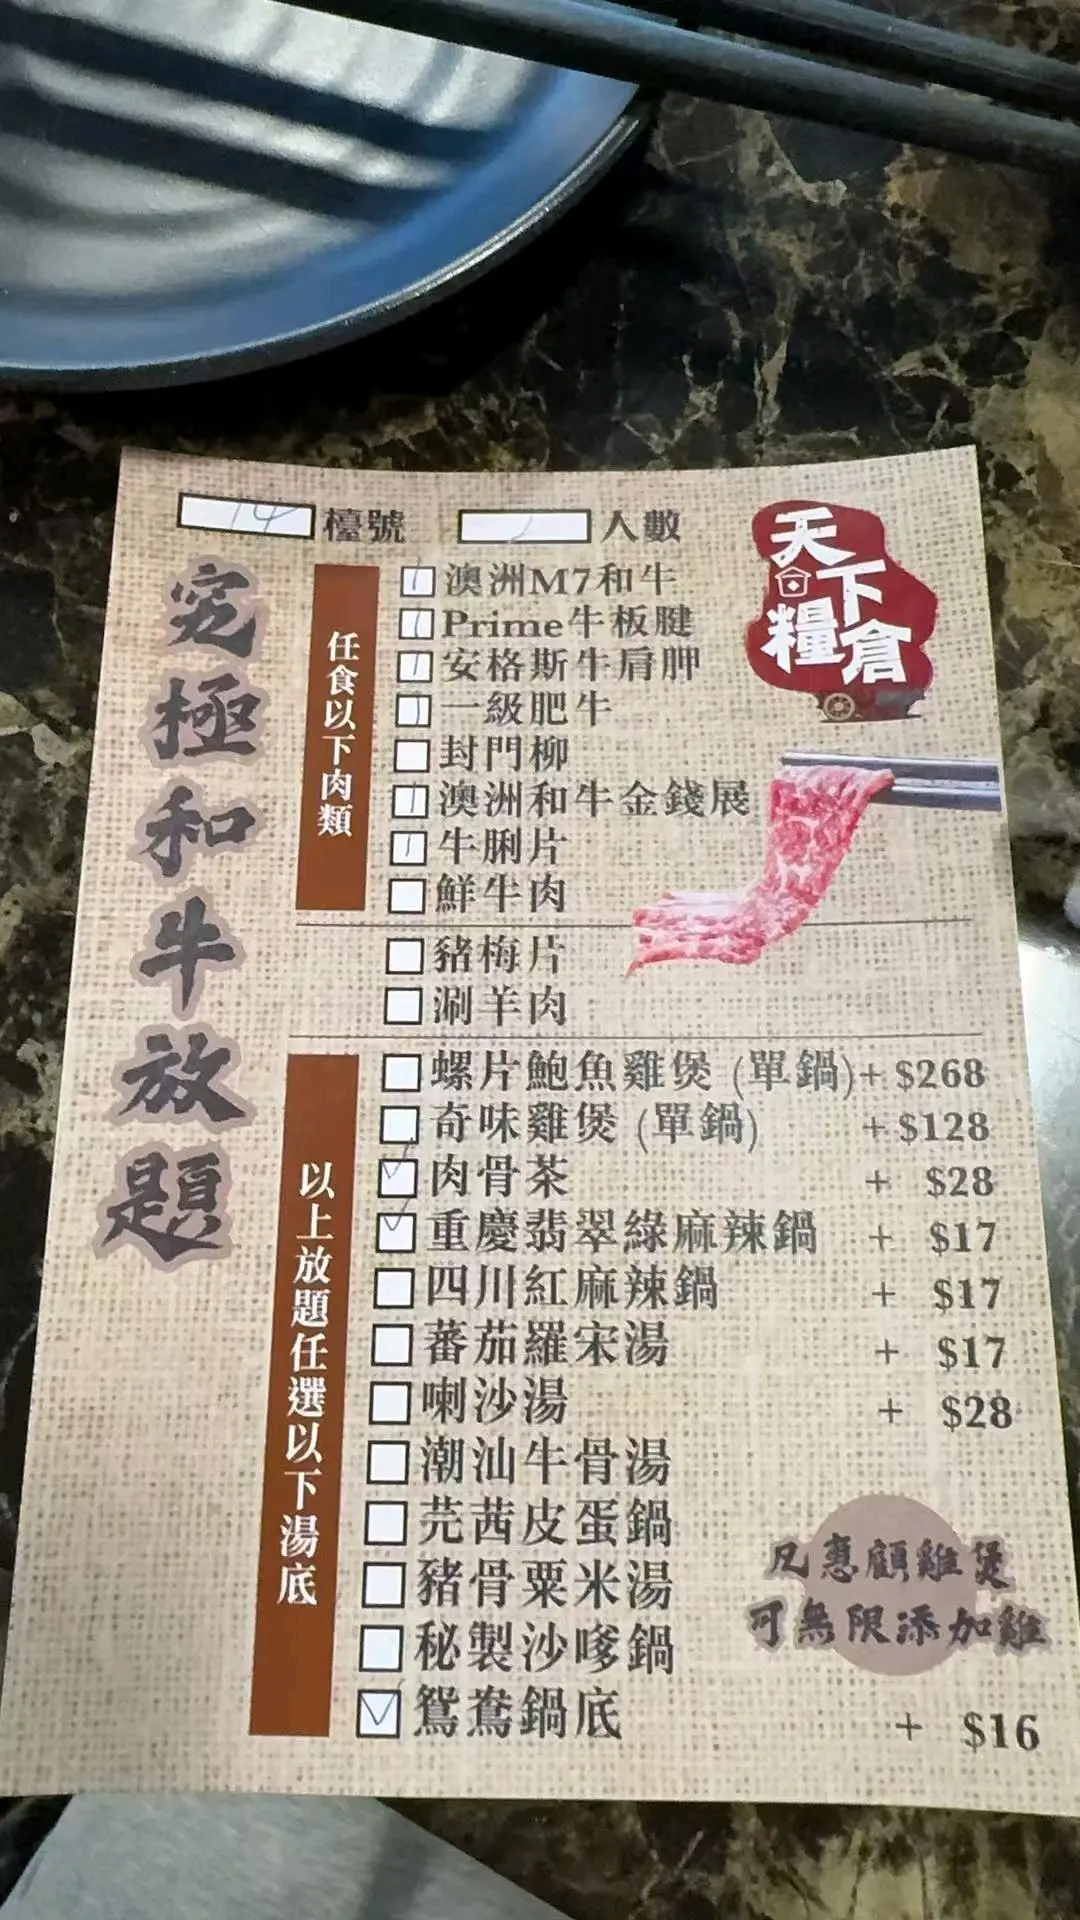 14 檯號 2 人數
天下糧倉
究極和牛放題
任食以下肉類
1 澳洲M7和牛
1 Prime牛板腱
1 安格斯牛肩胛
1 一級肥牛
封門柳
1 澳洲和牛金錢展
1 牛脷片
鮮牛肉
豬梅片
涮羊肉
以上放題任選以下湯底
螺片鮑魚雞煲 (單鍋)+ $268
奇味雞煲 (單鍋) + $128
肉骨茶 + $28
重慶翡翠綠麻辣鍋 + $17
四川紅麻辣鍋 + $17
蕃茄羅宋湯 + $17
喇沙湯 + $28
潮汕牛骨湯
芫茜皮蛋鍋
豬骨粟米湯
秘製沙嗲鍋
鴛鴦鍋底 + $16
凡惠顧雞煲
可無限添加雞